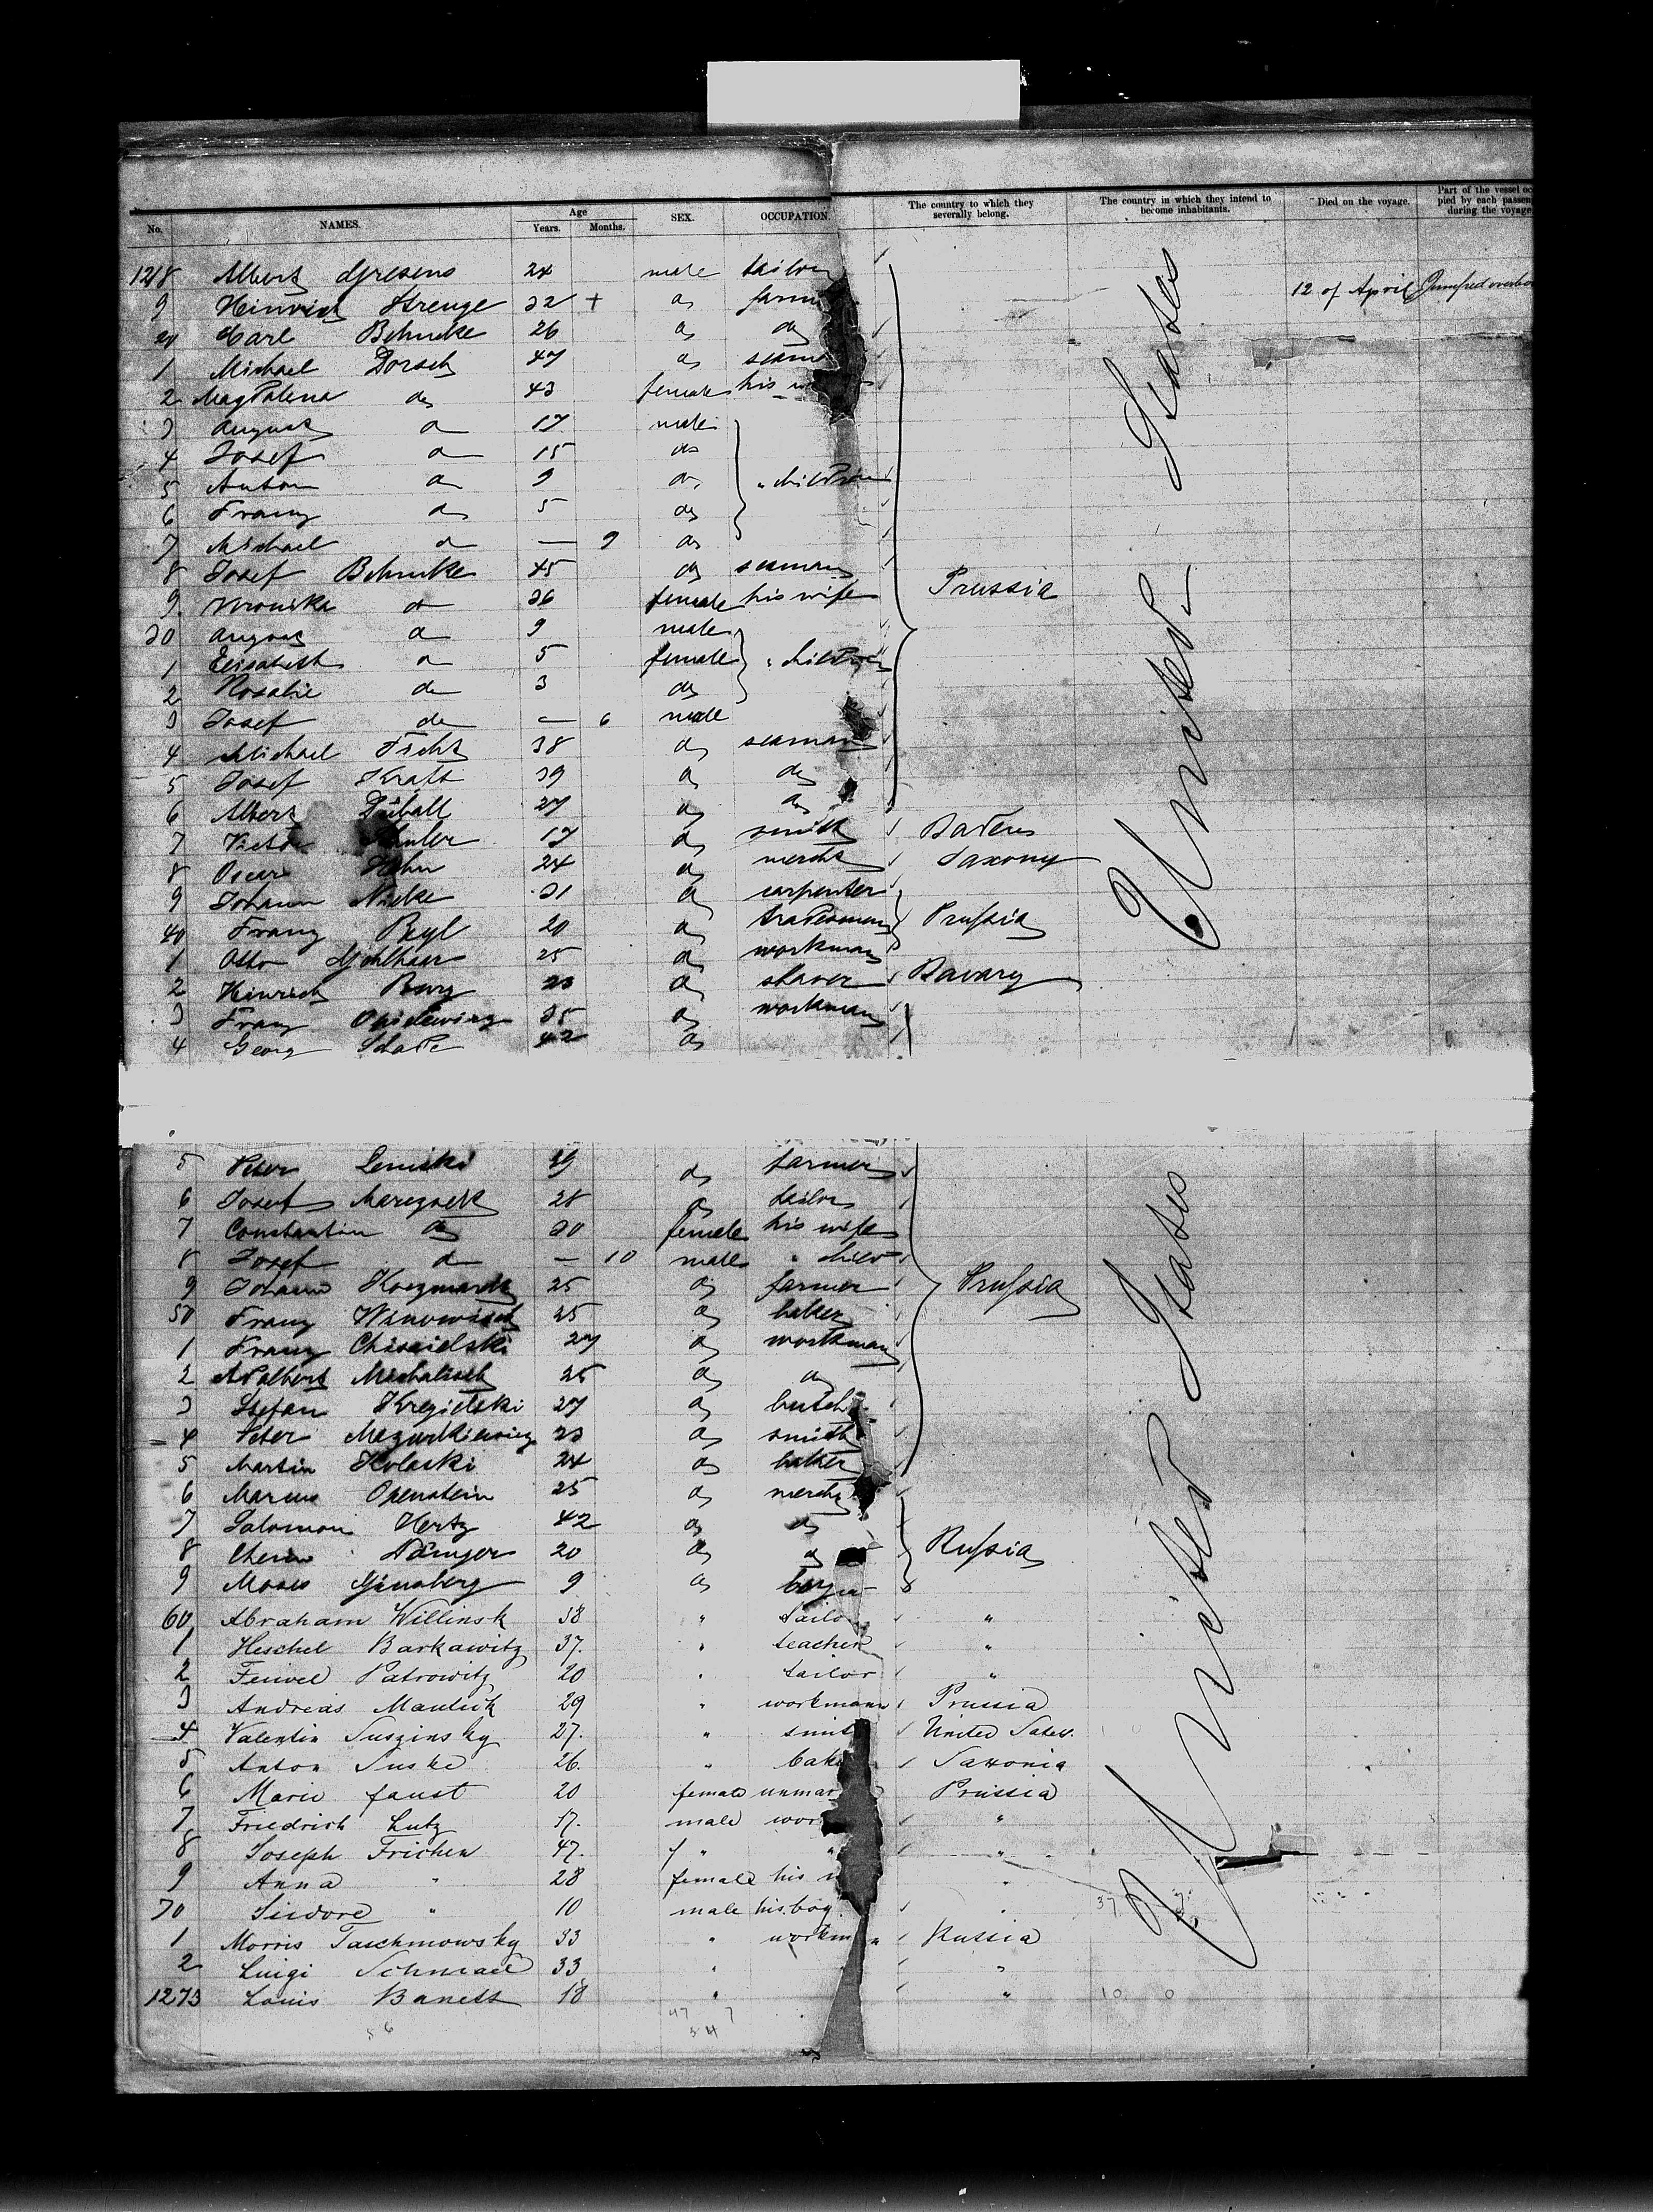 No. NAMES. Age Years. Months. SEX. OCCUPATION. The country to which they severally belong. The country in which they intend to become inhabitants. Died on the voyage. Part of the vessel oc pied by each passen during the voyage
1218 Albert male tailor
9 Heinrich Strenge 32 + do farm 12 of April Jumped overbo
20 Carl Behncke 26 do do
1 Michael Dorsch 47 do seam
2 Magdalena do 43 female his w
3 August do 17 male
4 Josef do 15 do
5 Anton do 9 do " children
6 Franz do 5 do
7 Michael do — 9 do
8 Josef Behncke 45 do seaman
9 Veronika do 36 female his wife Prussia
30 August do 9 male
1 Elisabeth do 5 female " children
2 Rosalie do 3 do
3 Josef do — 6 male
4 Michael 38 do seaman
5 Josef Kraft 39 do do
6 Albert 27 do do
7 Victor 17 do smith Baden
8 Oscar Hahn 24 do mercht Saxony
9 Johann 31 do carpenter
40 Franz 20 do tradesman Prussia
1 Otto 25 do workman
2 Heinrich 23 do shaver Bavary
3 Franz 35 do workman
4 Georg Schade 42 do
United States
5 Peter Lemski 39 do farmer
6 Josef 28 do tailor
7 Constantin do 20 female his wife
8 Josef do — 10 male " child
9 Johann Kaczmarek 25 do farmer Prussia
50 Franz 25 do baker
1 Franz 27 do workman
2 Adalbert 25 do do
3 Stefan 27 do butch
4 Peter Mazurkiewicz 23 do smith
5 Martin Kolaski 24 do baker
6 Marcus Openstein 25 do mercht
7 Salomon Hertz 42 do do
8 20 do do Russia
9 Moses Ginsberg 9 do boy
60 Abraham Willinsk 38 " tailo "
1 Heschel Barkawitz 37. " teacher "
2 Feiwel Patrowitz 20 " tailor "
3 Andreas 29 " workmann Prussia
4 Valentin Suszinsky 27. " smit United Sates.
5 Anton Suske 26. " bak Saxonia
6 Marie faust 20 female unmar Prussia
7 Friedrich Lutz 17. male wor "
8 Joseph Frichen 47. " " "
9 Anna " 28 female his "
70 Sindore " 10 male his boy "
1 Morris Taschmowsky 33 " workm Russia
2 Luigi 33 " "
1273 Louis Banett 18 " "
United States